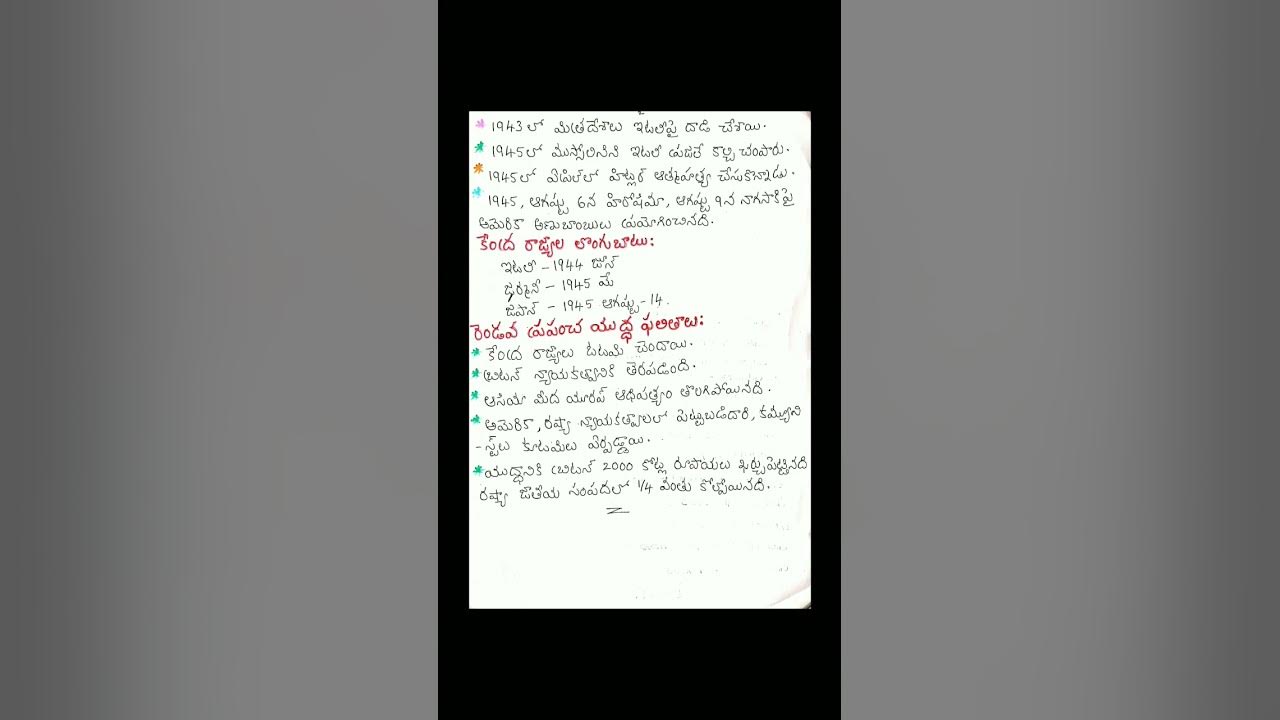 * 1943 లో మిత్రదేశాలు ఇటలీపై దాడి చేశాయి.
* 1945లో ముస్సోలినీని ఇటలీ ప్రజలే కాల్చి చంపారు.
* 1945లో ఏప్రిల్‌లో హిట్లర్ ఆత్మహత్య చేసుకొన్నాడు.
* 1945, ఆగష్టు 6న హిరోషిమా, ఆగష్టు 9న నాగసాకిపై
అమెరికా అణుబాంబులు ప్రయోగించినది.
కేంద్ర రాజ్యాల లొంగుబాటు:
ఇటలీ - 1944 జూన్
జర్మనీ - 1945 మే
జపాన్ - 1945 ఆగష్టు - 14.
రెండవ ప్రపంచ యుద్ధ ఫలితాలు:
* కేంద్ర రాజ్యాలు ఓటమి చెందాయి.
* బ్రిటన్ న్యాయకత్వానికి తెరపడింది.
* ఆసియా మీద యూరప్ ఆధిపత్యం తొలగిపోయినది.
* అమెరికా, రష్యా న్యాయకత్వాలలో పెట్టుబడిదారి, కమ్యూని
- స్ట్‌ల కూటమిలు ఏర్పడ్డాయి.
* యుద్ధానికి బ్రిటన్ 2000 కోట్ల రూపాయలు ఖర్చుపెట్టినది
రష్యా జాతీయ సంపదలో 1/4 వంతు కోల్పోయినది.